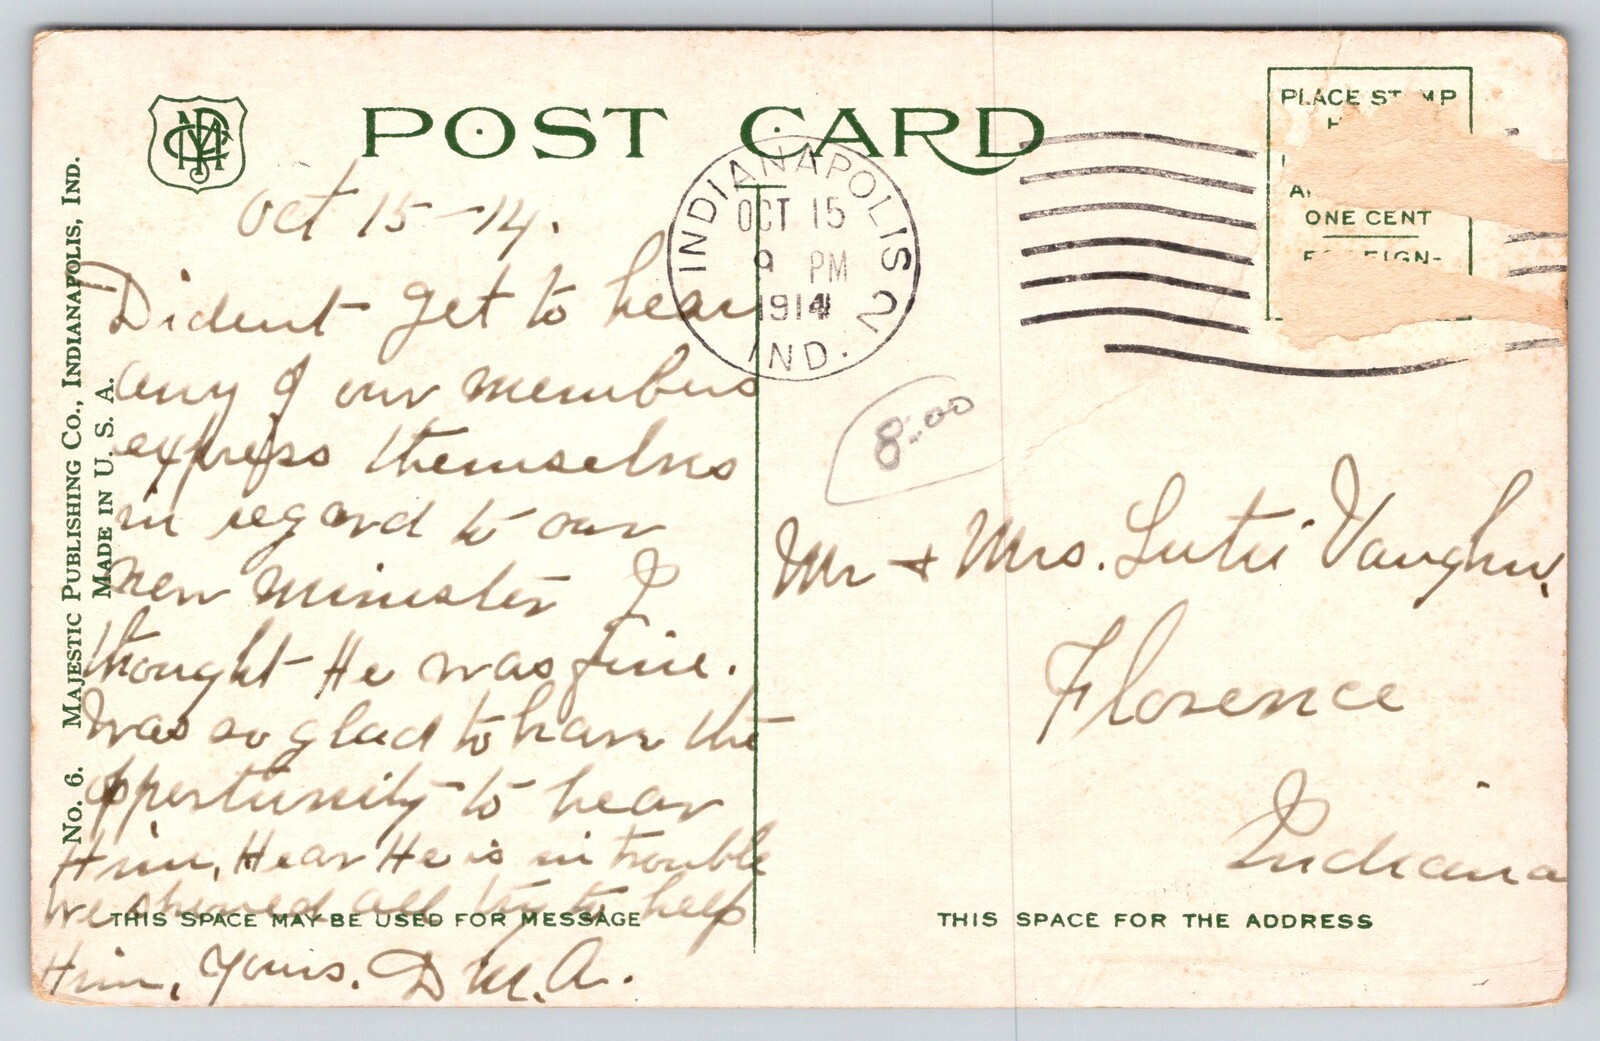 POST CARD
PLACE ST MP
ONE CENT
INDIANAPOLIS 2
OCT 15
9 PM
1914
IND.
No. 6. MAJESTIC PUBLISHING CO., INDIANAPOLIS, IND.
MADE IN U. S. A.
Oct 15-14.
Dident get to hear
any of our members
express themselves
in regard to our
new minister I
thought He was fine.
Was so glad to have the
oppertunity to hear
Him, Hear He is in trouble
We showed all try to help
Him, Yours. D M. A.
THIS SPACE MAY BE USED FOR MESSAGE
8.00
Mr + Mrs. Lutie Vaughn,
Florence
Indiana
THIS SPACE FOR THE ADDRESS